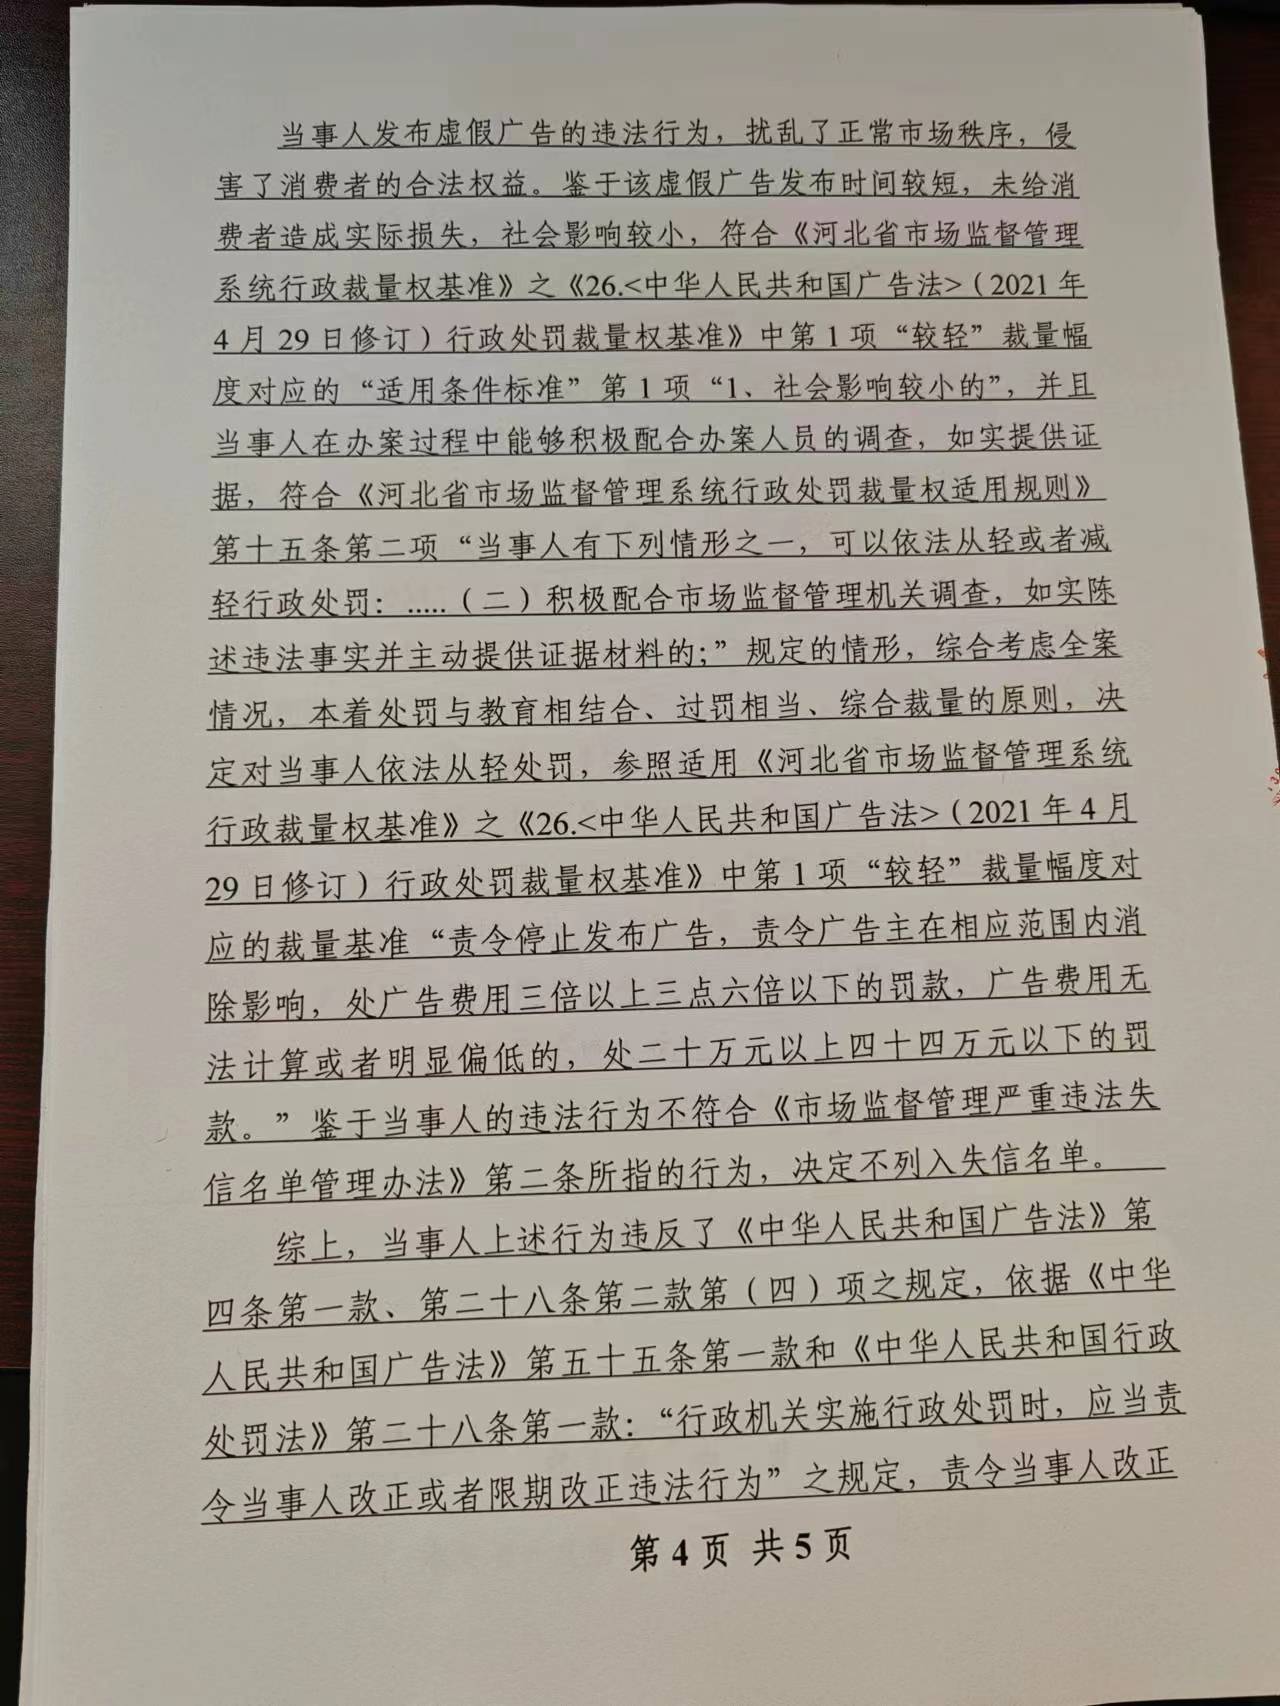 当事人发布虚假广告的违法行为，扰乱了正常市场秩序，侵
害了消费者的合法权益。鉴于该虚假广告发布时间较短，未给消
费者造成实际损失，社会影响较小，符合《河北省市场监督管理
系统行政裁量权基准》之《26.<中华人民共和国广告法>（2021 年
4 月 29 日修订）行政处罚裁量权基准》中第 1 项“较轻”裁量幅
度对应的“适用条件标准”第 1 项“1、社会影响较小的”，并且
当事人在办案过程中能够积极配合办案人员的调查，如实提供证
据，符合《河北省市场监督管理系统行政处罚裁量权适用规则》
第十五条第二项“当事人有下列情形之一，可以依法从轻或者减
轻行政处罚：.....（二）积极配合市场监督管理机关调查，如实陈
述违法事实并主动提供证据材料的；”规定的情形，综合考虑全案
情况，本着处罚与教育相结合、过罚相当、综合裁量的原则，决
定对当事人依法从轻处罚，参照适用《河北省市场监督管理系统
行政裁量权基准》之《26.<中华人民共和国广告法>（2021 年 4 月
29 日修订）行政处罚裁量权基准》中第 1 项“较轻”裁量幅度对
应的裁量基准“责令停止发布广告，责令广告主在相应范围内消
除影响，处广告费用三倍以上三点六倍以下的罚款，广告费用无
法计算或者明显偏低的，处二十万元以上四十四万元以下的罚
款。”鉴于当事人的违法行为不符合《市场监督管理严重违法失
信名单管理办法》第二条所指的行为，决定不列入失信名单。
综上，当事人上述行为违反了《中华人民共和国广告法》第
四条第一款、第二十八条第二款第（四）项之规定，依据《中华
人民共和国广告法》第五十五条第一款和《中华人民共和国行政
处罚法》第二十八条第一款：“行政机关实施行政处罚时，应当责
令当事人改正或者限期改正违法行为”之规定，责令当事人改正
第 4 页 共 5 页